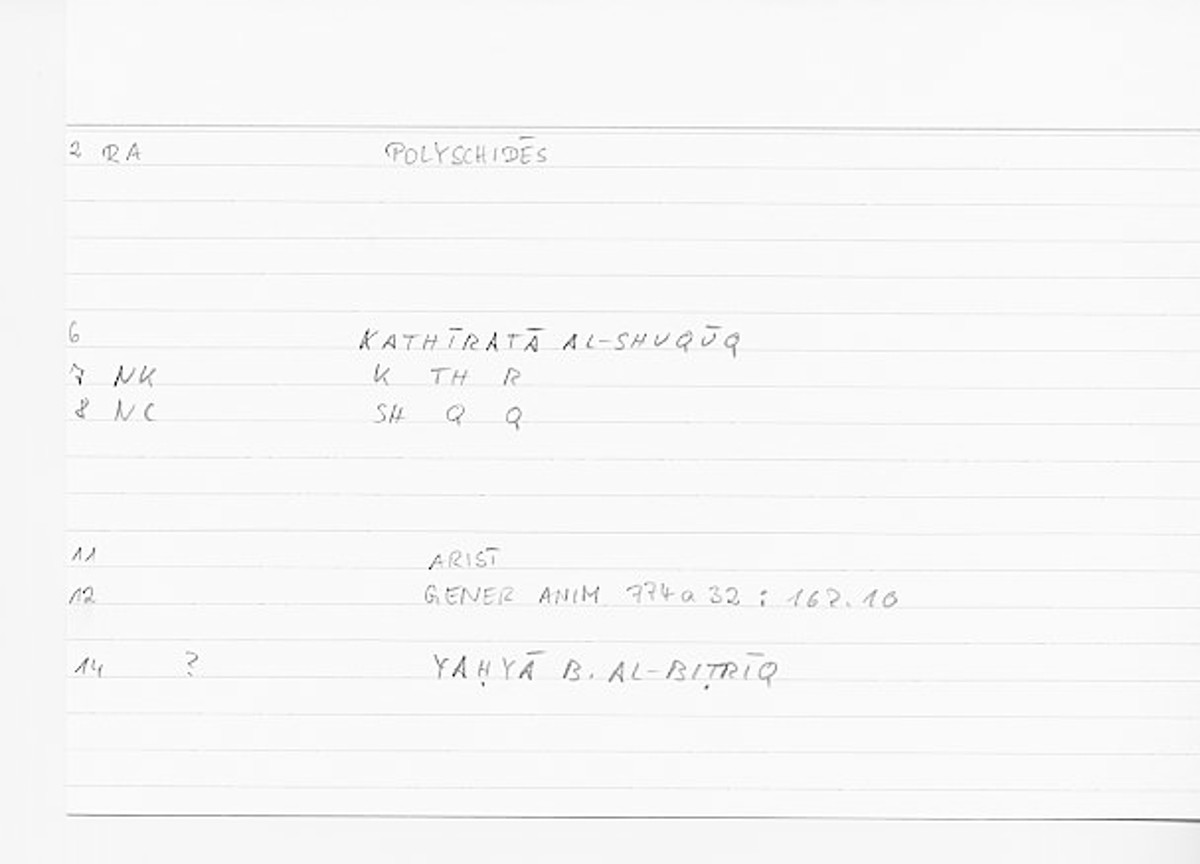 2 RA POLYSCHIDĒS
6 KATHĪRATĀ AL-SHUQŪQ
7 NK K TH R
8 NC SH Q Q
11 ARIST
12 GENER ANIM 774a 32 : 162.10
14 ? YAḤYĀ B. AL-BIṬRĪQ